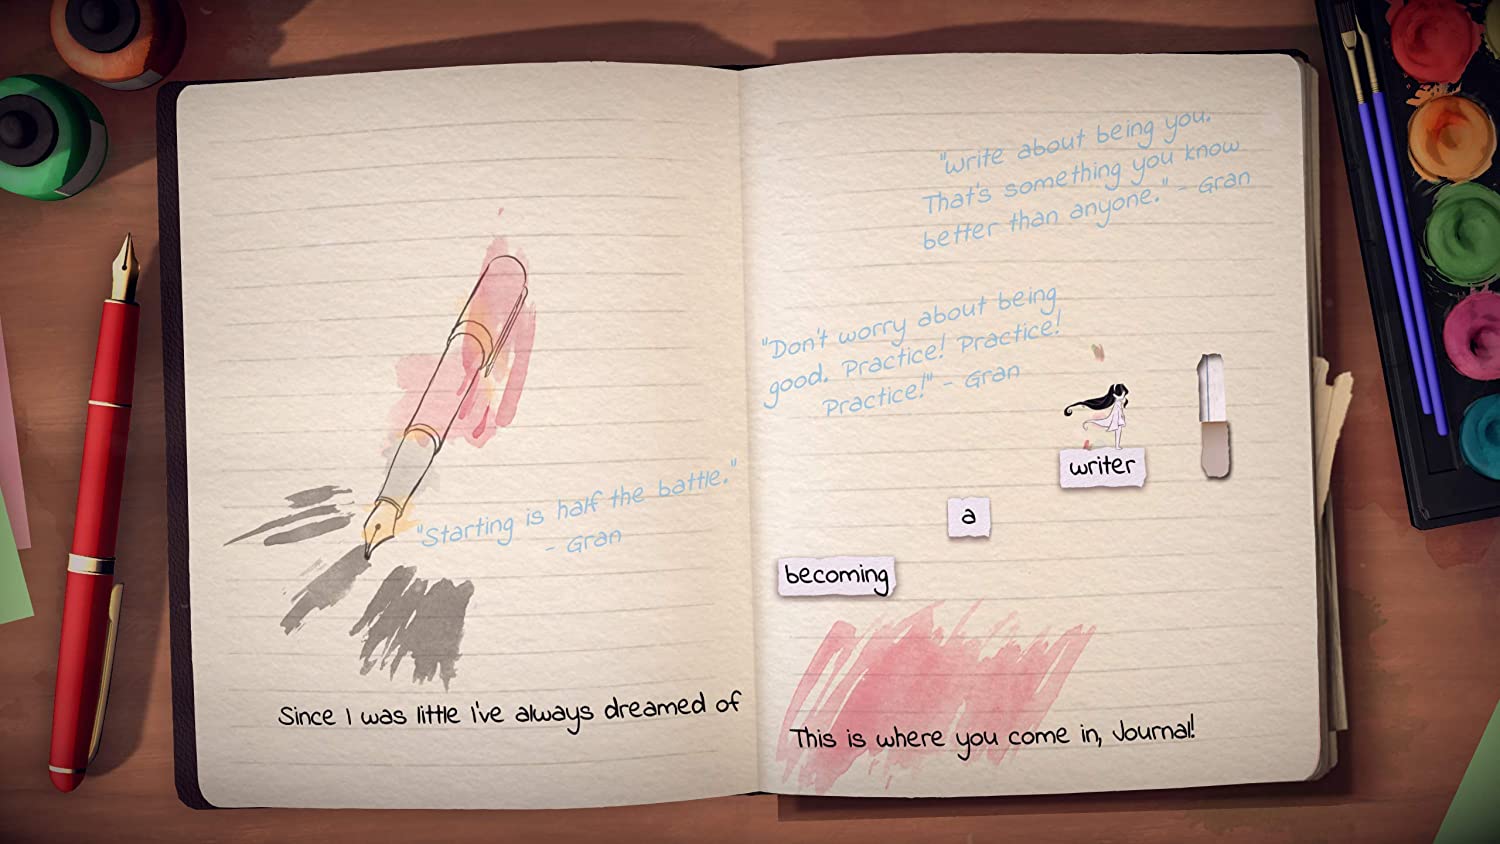 "Starting is half the battle."
- Gran
Since I was little I've always dreamed of
"Write about being you.
That's something you know
better than anyone." - Gran
"Don't worry about being
good. Practice! Practice!
Practice!" - Gran
writer
a
becoming
This is where you come in, Journal!